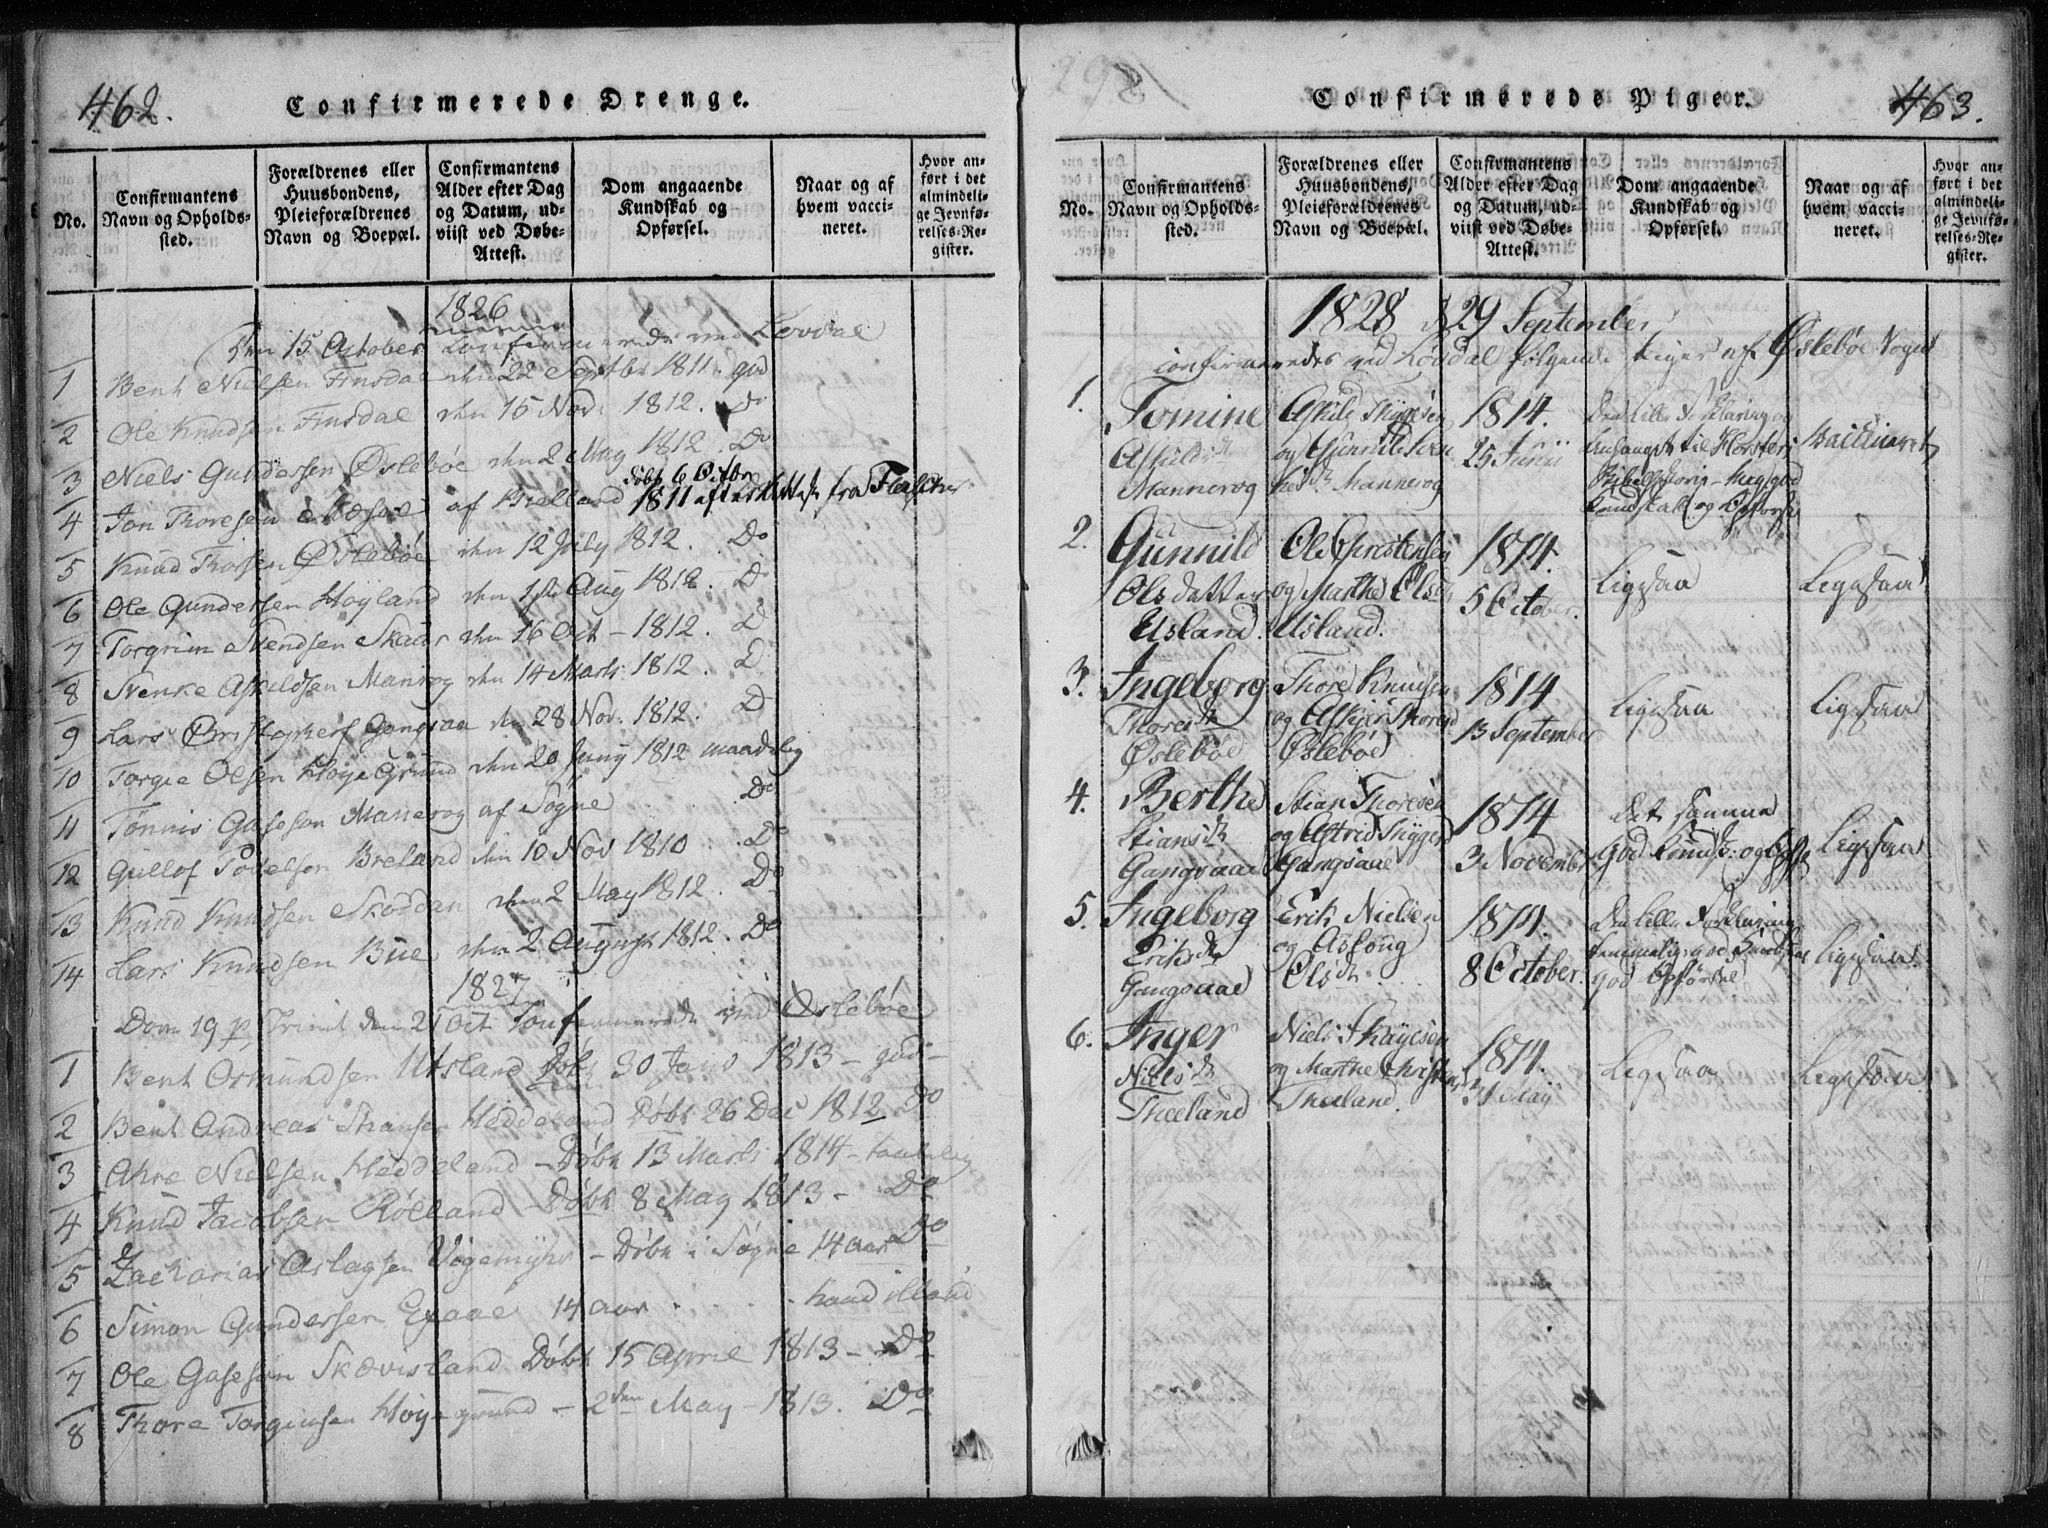 462.
Confirmerede Drenge.
No.
Confirmantens Navn og Opholds-sted.
Forældrenes eller Huusbondens, Pleieforældrenes Navn og Boepæl.
Confirmantens Alder efter Dag og Datum, ud-viist ved Døbe-Attest.
Dom angaaende Kundskab og Opførsel.
Naar og af hvem vacci-neret.
Hvor an-ført i det almindeli-ge Jevnfø-relses-Re-gister.
1826
Den 15 October Confirmerede ved Lovdal
1 Bent Nielsen Finsdal den 22 Septbr 1811. god
2 Ole Knudsen Finsdal den 15 Nov. 1812. Do
3 Niels Gundersen Øslebøe den 2 May 1812. Do
døbt 6 Octbr
4 Jon Thoresen af Brelland 1811 efter Attest fra
5 Knud Thorsen Øslebøe den 12 July 1812. Do
6 Ole Gundersen Høyland den 1ste Aug 1812. D
7 Torgrim Svendsen Skaar den 16 Oct - 1812. D
8 Svenke Askildsen Manrog den 14 Marts 1812. D
9 Lars Gangsaa den 28 Nov. 1812. D
10 Torgie Olsen Høye Grund den 20 Juny 1812 maadelig
11 Tønnis Gaseson Manerog af Søgne Do
12 Gullof Breland den 10 Nov 1810 Do
13 Knud Knudsen Skoddan den 2 May 1812. Do
14 Lars Knudsen Bue den 2 August 1812. Do
1827
Dom 19 p. Trinit den 21 Oct Confirmerede ved Øslebøe
1 Bent Osmundsen Utsland Døbt 30 Janv 1813 - god -
2 Bent Andreas Hæddeland Døbt 26 Dec 1812 Do
3 Nielsen Heddeland - Døbt 13 Marts 1814 - taalelig
4 Knud Jacobsen Røiland - Døbt 8 May 1813 - Do
5 Zacharias Aslagsen Vogemyhr - Døbt i Søgne 14 aar Do
6 Simon Gundersen 14 aar
7 Ole Gaseson Skævisland Døbt 15 April 1813 - Do
8 Thore Torgiusen Høyegrund - 2den May - 1813. Do
463.
Confirmerede Piger.
No.
Confirmantens Navn og Opholds-sted.
Forældrenes eller Huusbondens, Pleieforældrenes Navn og Boepæl.
Confirmantens Alder efter Dag og Datum, ud-viist ved Døbe-Attest.
Dom angaaende Kundskab og Opførsel.
Naar og af hvem vacci-neret.
Hvor an-ført i det almindeli-ge Jevnfø-relses-Re-gister.
1828 d 29 September
confirmeredes ved Lovdal følgende Piger af Øslebøe Sogn
1. Tomine Askilds dr Mannerog
Askild og Gunnild Mannerog
1814. 25 Junii
Vaccineret
2. Gunnild Olsdatter Usland.
Ole Christensen og Marthe Olsd Usland.
1814. 5 October.
Ligesaa
Ligesaa
3. Ingeborg Thores dr Øslebøe
Thore Knudsen og Askjer Thoresd Øslebøe
1814 13 September
Ligesaa
Ligesaa
4. Berthe Stians dr Gangsaae
Stian Thoresen og Astrid Gangsaae
1814 3 November
det samme god Kundsk: og Opfør
Ligesaa
5. Ingeborg Eriks dr Gangsaae
Erik Nielsen og Asloug Ols dr
1814. 8 October.
den lille Forklaring temmelig god Kundskab god Opførsel
Ligesaa
6. Inger Niels dr Theeland
Niels og Marthe Christens Theeland.
1814. 31 May
Ligesaa
Ligesaa